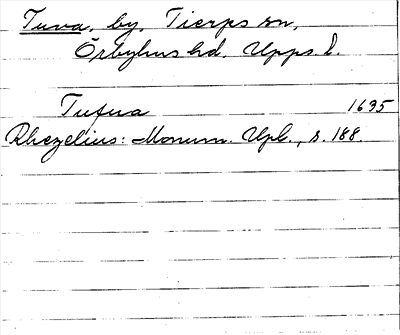 Tuva, by, Tierps sn,
Örbyhus hd, Upps. l.
Tufua 1695
Rhezelius: Monum. Upl., s. 188.